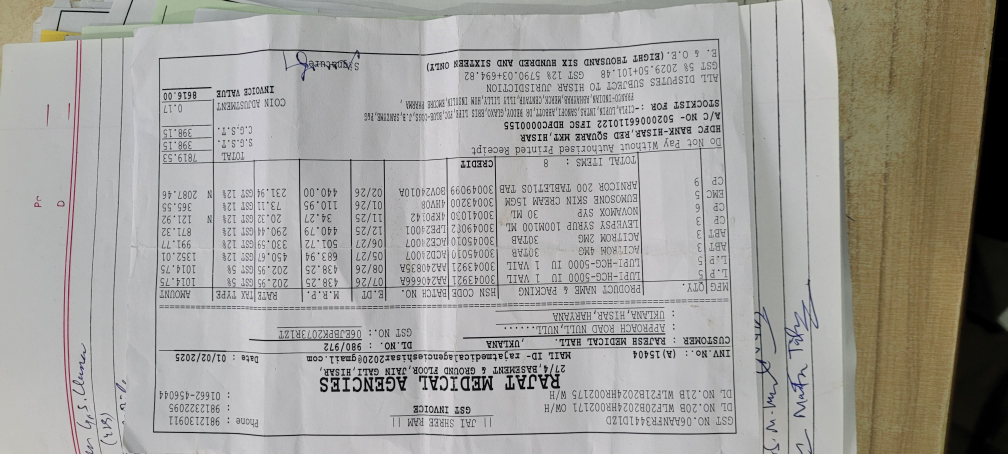 || JAI SHREE RAM ||
GST INVOICE
GST NO.06AANFR3441D1ZD
DL NO.20B WLF20B2024HR002171 OW/H
DL NO.21B WLF21B2024HR002175 W/H
Phone : 9812130911
: 9812322095
: 01662-456044
RAJAT MEDICAL AGENCIES
27/4,BASEMENT & GROUND FLOOR,JAIN GALI,HISAR,
MAIL ID- rajatmedicalagencieshisar2020@gmail.com
INV.No.: (A)15404
Date : 01/02/2025
CUSTOMER : RAJESH MEDICAL HALL. ,UKLANA
: APPROACH ROAD NULL,NULL......
: UKLANA,HISAR,HARYANA
DL.NO. : 980/972
GST NO.: 06EJBPR2073R1ZT
MFG QTY. PRODUCT NAME & PACKING HSN CODE BATCH NO. E.DT M.R.P. RATE TAX TYPE AMOUNT
L.P 5 LUPI-HCG-5000 IU 1 VAIL 30043921 AA24066A 07/26 438.25 202.95 GST 5% 1014.75
L.P 5 LUPI-HCG-5000 IU 1 VAIL 30043921 AA24083SA 08/26 438.25 202.95 GST 5% 1014.75
ABT 3 ACITROM 4MG 30TAB 30045010 ACD24007 05/27 683.94 450.67 GST 12% 1352.01
ABT 3 ACITROM 2MG 30TAB 30045010 ACB24027 06/27 501.72 330.59 GST 12% 991.77
CP 3 LEVEPSY SYRUP 100M100 ML 30049082 LPB24001 12/25 440.79 290.44 GST 12% 871.32
CP 6 NOVAMOX SYP 30 ML 30041030 4KP0142 11/25 34.27 20.32 GST 12% N 121.92
EMC 5 EUMOSONE SKIN CREAM 15GM 30043200 4HV08 01/26 110.95 73.11 GST 12% 365.55
CP 9 ARNICOR 200 TABLET10S TAB 30049099 BOV24010A 02/26 440.00 231.94 GST 12% N 2087.46
TOTAL ITEMS : 8 CREDIT
TOTAL 7819.53
S.G.S.T. 398.15
C.G.S.T. 398.15
COIN ADJUSTMENT 0.17
INVOICE VALUE 8616.00
Do Not Pay Without Authorised Printed Receipt
HDFC BANK-HISAR,RED SQUARE MKT,HISAR
A/C NO- 50200066110122 IFSC HDFC0000155
ALL DISPUTES SUBJECT TO HISAR JURISDICTION
GST 5% 2029.50+101.48 GST 12% 5790.03+694.82
E. & O.E. (EIGHT THOUSAND SIX HUNDRED AND SIXTEEN ONLY)
Signature